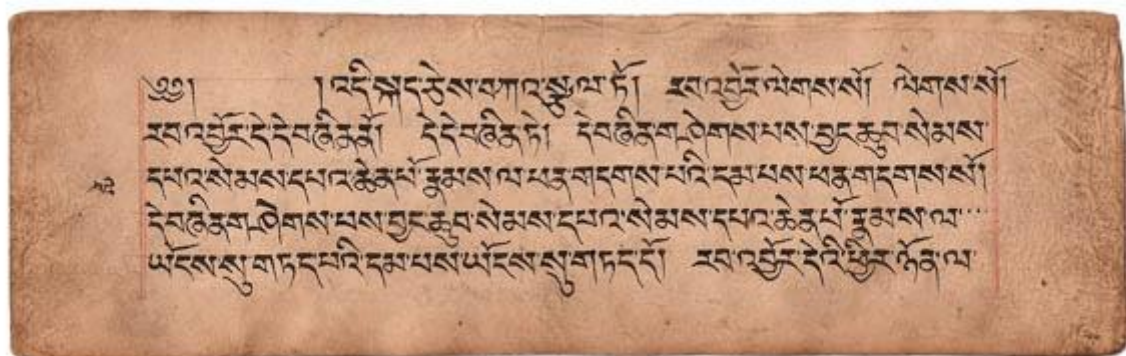 ༄༅། །འདི་སྐད་ཅེས་བཀའ་སྩལ་ཏོ། རབ་འབྱོར་ལེགས་སོ། ལེགས་སོ།
རབ་འབྱོར་དེ་དེ་བཞིན་ནོ། དེ་དེ་བཞིན་ཏེ། དེ་བཞིན་གཤེགས་པས་བྱང་ཆུབ་སེམས་
དཔའ་སེམས་དཔའ་ཆེན་པོ་རྣམས་ལ་ཕན་གདགས་པའི་དམ་པས་ཕན་གདགས་སོ།
དེ་བཞིན་གཤེགས་པས་བྱང་ཆུབ་སེམས་དཔའ་སེམས་དཔའ་ཆེན་པོ་རྣམས་ལ་་་་
ཡོངས་སུ་གཏད་པའི་དམ་པས་ཡོངས་སུ་གཏད་དོ། རབ་འབྱོར་དེའི་ཕྱིར་ཉོན་ལ་